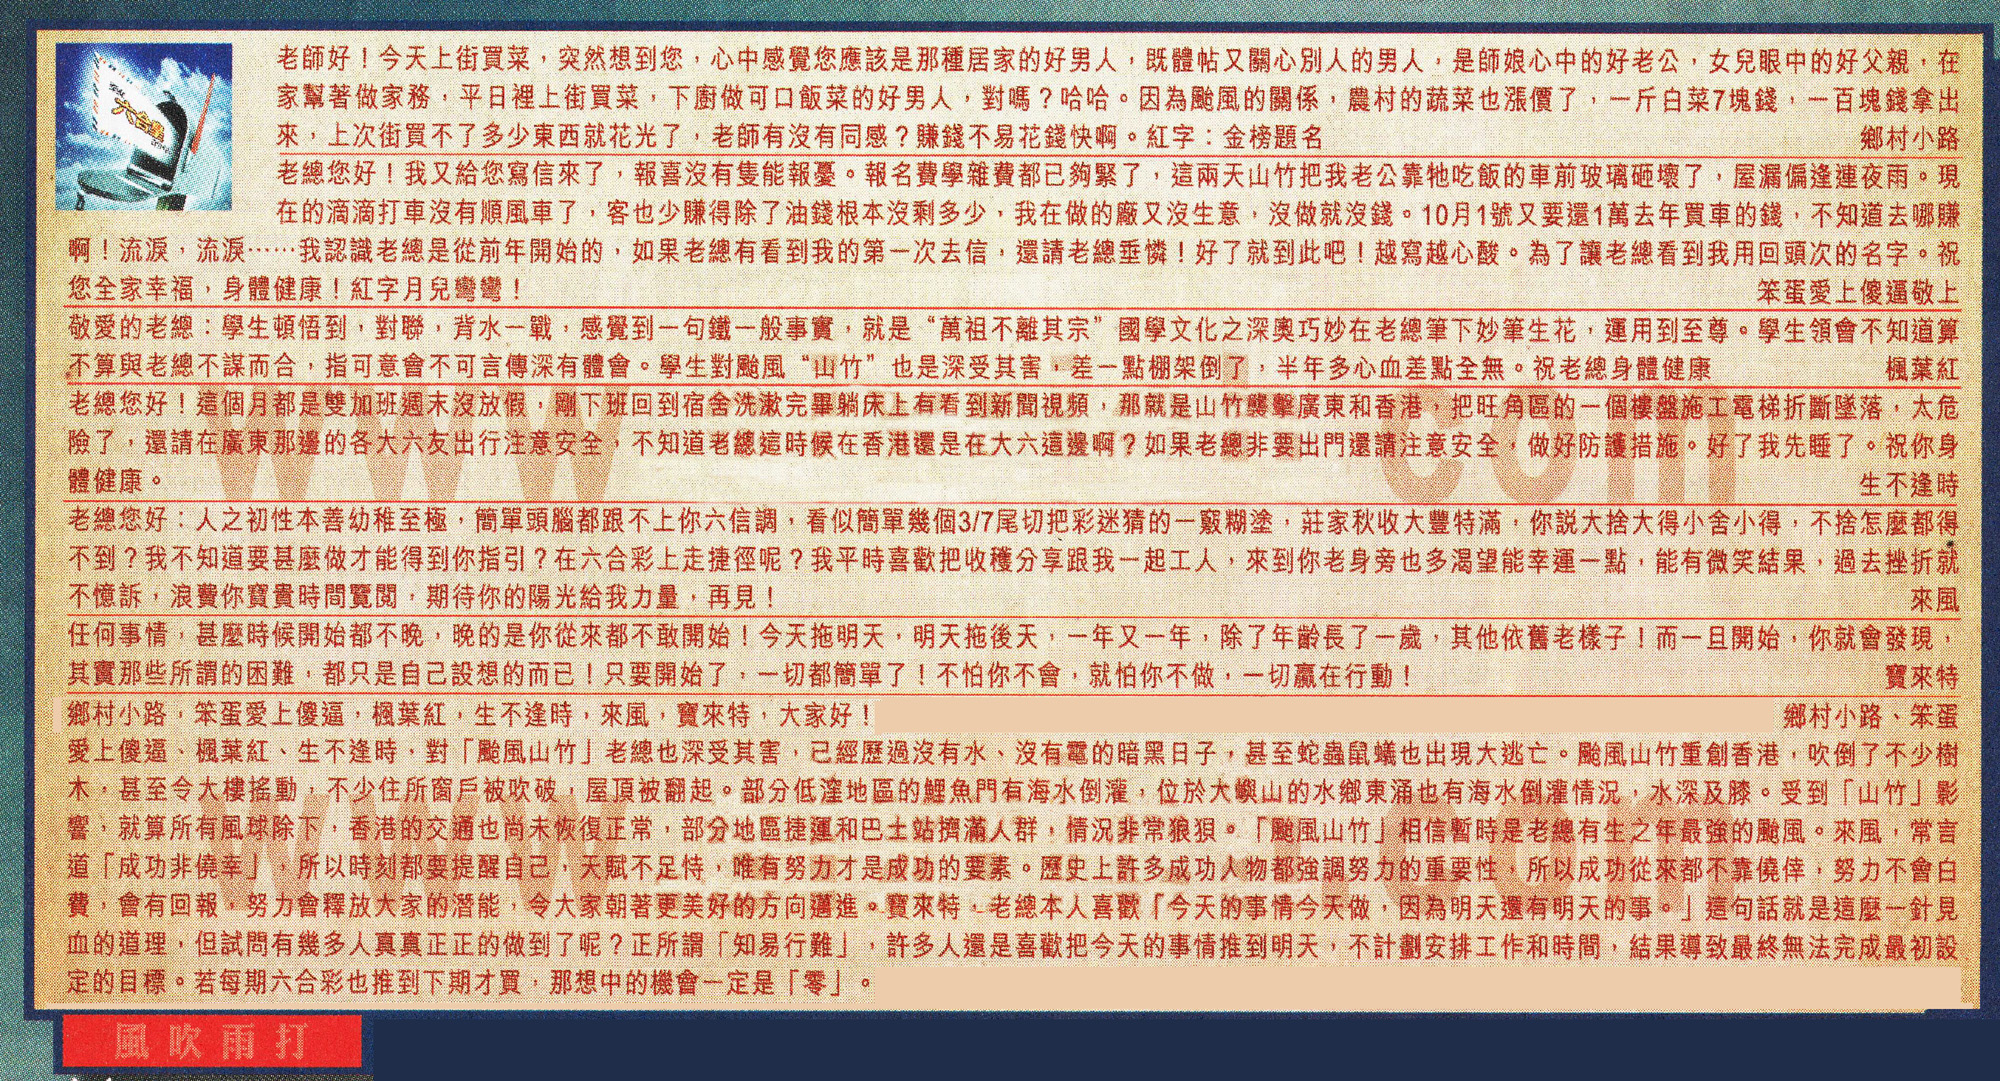 六合彩
老師好！今天上街買菜，突然想到您，心中感覺您應該是那種居家的好男人，既體帖又關心別人的男人，是師娘心中的好老公，女兒眼中的好父親，在
家幫著做家務，平日裡上街買菜，下廚做可口飯菜的好男人，對嗎？哈哈。因為颱風的關係，農村的蔬菜也漲價了，一斤白菜7塊錢，一百塊錢拿出
來，上次街買不了多少東西就花光了，老師有沒有同感？賺錢不易花錢快啊。紅字：金榜題名 鄉村小路
老總您好！我又給您寫信來了，報喜沒有隻能報憂。報名費學雜費都已夠緊了，這兩天山竹把我老公靠牠吃飯的車前玻璃砸壞了，屋漏偏逢連夜雨。現
在的滴滴打車沒有順風車了，客也少賺得除了油錢根本沒剩多少，我在做的廠又沒生意，沒做就沒錢。10月1號又要還1萬去年買車的錢，不知道去哪賺
啊！流淚，流淚……我認識老總是從前年開始的，如果老總有看到我的第一次去信，還請老總垂憐！好了就到此吧！越寫越心酸。為了讓老總看到我用回頭次的名字。祝
您全家幸福，身體健康！紅字月兒彎彎！ 笨蛋愛上傻逼敬上
敬愛的老總：學生頓悟到，對聯，背水一戰，感覺到一句鐵一般事實，就是“萬祖不離其宗”國學文化之深奧巧妙在老總筆下妙筆生花，運用到至尊。學生領會不知道算
不算與老總不謀而合，指可意會不可言傳深有體會。學生對颱風“山竹”也是深受其害，差一點棚架倒了，半年多心血差點全無。祝老總身體健康 楓葉紅
老總您好！這個月都是雙加班週末沒放假，剛下班回到宿舍洗漱完畢躺床上有看到新聞視頻，那就是山竹襲擊廣東和香港，把旺角區的一個樓盤施工電梯折斷墜落，太危
險了，還請在廣東那邊的各大六友出行注意安全，不知道老總這時候在香港還是在大六這邊啊？如果老總非要出門還請注意安全，做好防護措施。好了我先睡了。祝你身
體健康。 生不逢時
老總您好：人之初性本善幼稚至極，簡單頭腦都跟不上你六信調，看似簡單幾個3/7尾切把彩迷猜的一竅糊塗，莊家秋收大豐特滿，你説大捨大得小舍小得，不捨怎麼都得
不到？我不知道要甚麼做才能得到你指引？在六合彩上走捷徑呢？我平時喜歡把收穫分享跟我一起工人，來到你老身旁也多渴望能幸運一點，能有微笑結果，過去挫折就
不憶訴，浪費你寶貴時間覽閱，期待你的陽光給我力量，再見！ 來風
任何事情，甚麼時候開始都不晚，晚的是你從來都不敢開始！今天拖明天，明天拖後天，一年又一年，除了年齡長了一歲，其他依舊老樣子！而一旦開始，你就會發現，
其實那些所謂的困難，都只是自己設想的而已！只要開始了，一切都簡單了！不怕你不會，就怕你不做，一切贏在行動！ 寶來特
鄉村小路，笨蛋愛上傻逼，楓葉紅，生不逢時，來風，寶來特，大家好！ 鄉村小路、笨蛋
愛上傻逼、楓葉紅、生不逢時，對「颱風山竹」老總也深受其害，已經歷過沒有水、沒有電的暗黑日子，甚至蛇蟲鼠蟻也出現大逃亡。颱風山竹重創香港，吹倒了不少樹
木，甚至令大樓搖動，不少住所窗戶被吹破，屋頂被翻起。部分低窪地區的鯉魚門有海水倒灌，位於大嶼山的水鄉東涌也有海水倒灌情況，水深及膝。受到「山竹」影
響，就算所有風球除下，香港的交通也尚未恢復正常，部分地區捷運和巴士站擠滿人群，情況非常狼狽。「颱風山竹」相信暫時是老總有生之年最強的颱風。來風，常言
道「成功非僥幸」，所以時刻都要提醒自己，天賦不足恃，唯有努力才是成功的要素。歷史上許多成功人物都強調努力的重要性，所以成功從來都不靠僥倖，努力不會白
費，會有回報，努力會釋放大家的潛能，令大家朝著更美好的方向邁進。寶來特，老總本人喜歡「今天的事情今天做，因為明天還有明天的事。」這句話就是這麼一針見
血的道理，但試問有幾多人真真正正的做到了呢？正所謂「知易行難」，許多人還是喜歡把今天的事情推到明天，不計劃安排工作和時間，結果導致最終無法完成最初設
定的目標。若每期六合彩也推到下期才買，那想中的機會一定是「零」。
www .com
www .com
風吹雨打